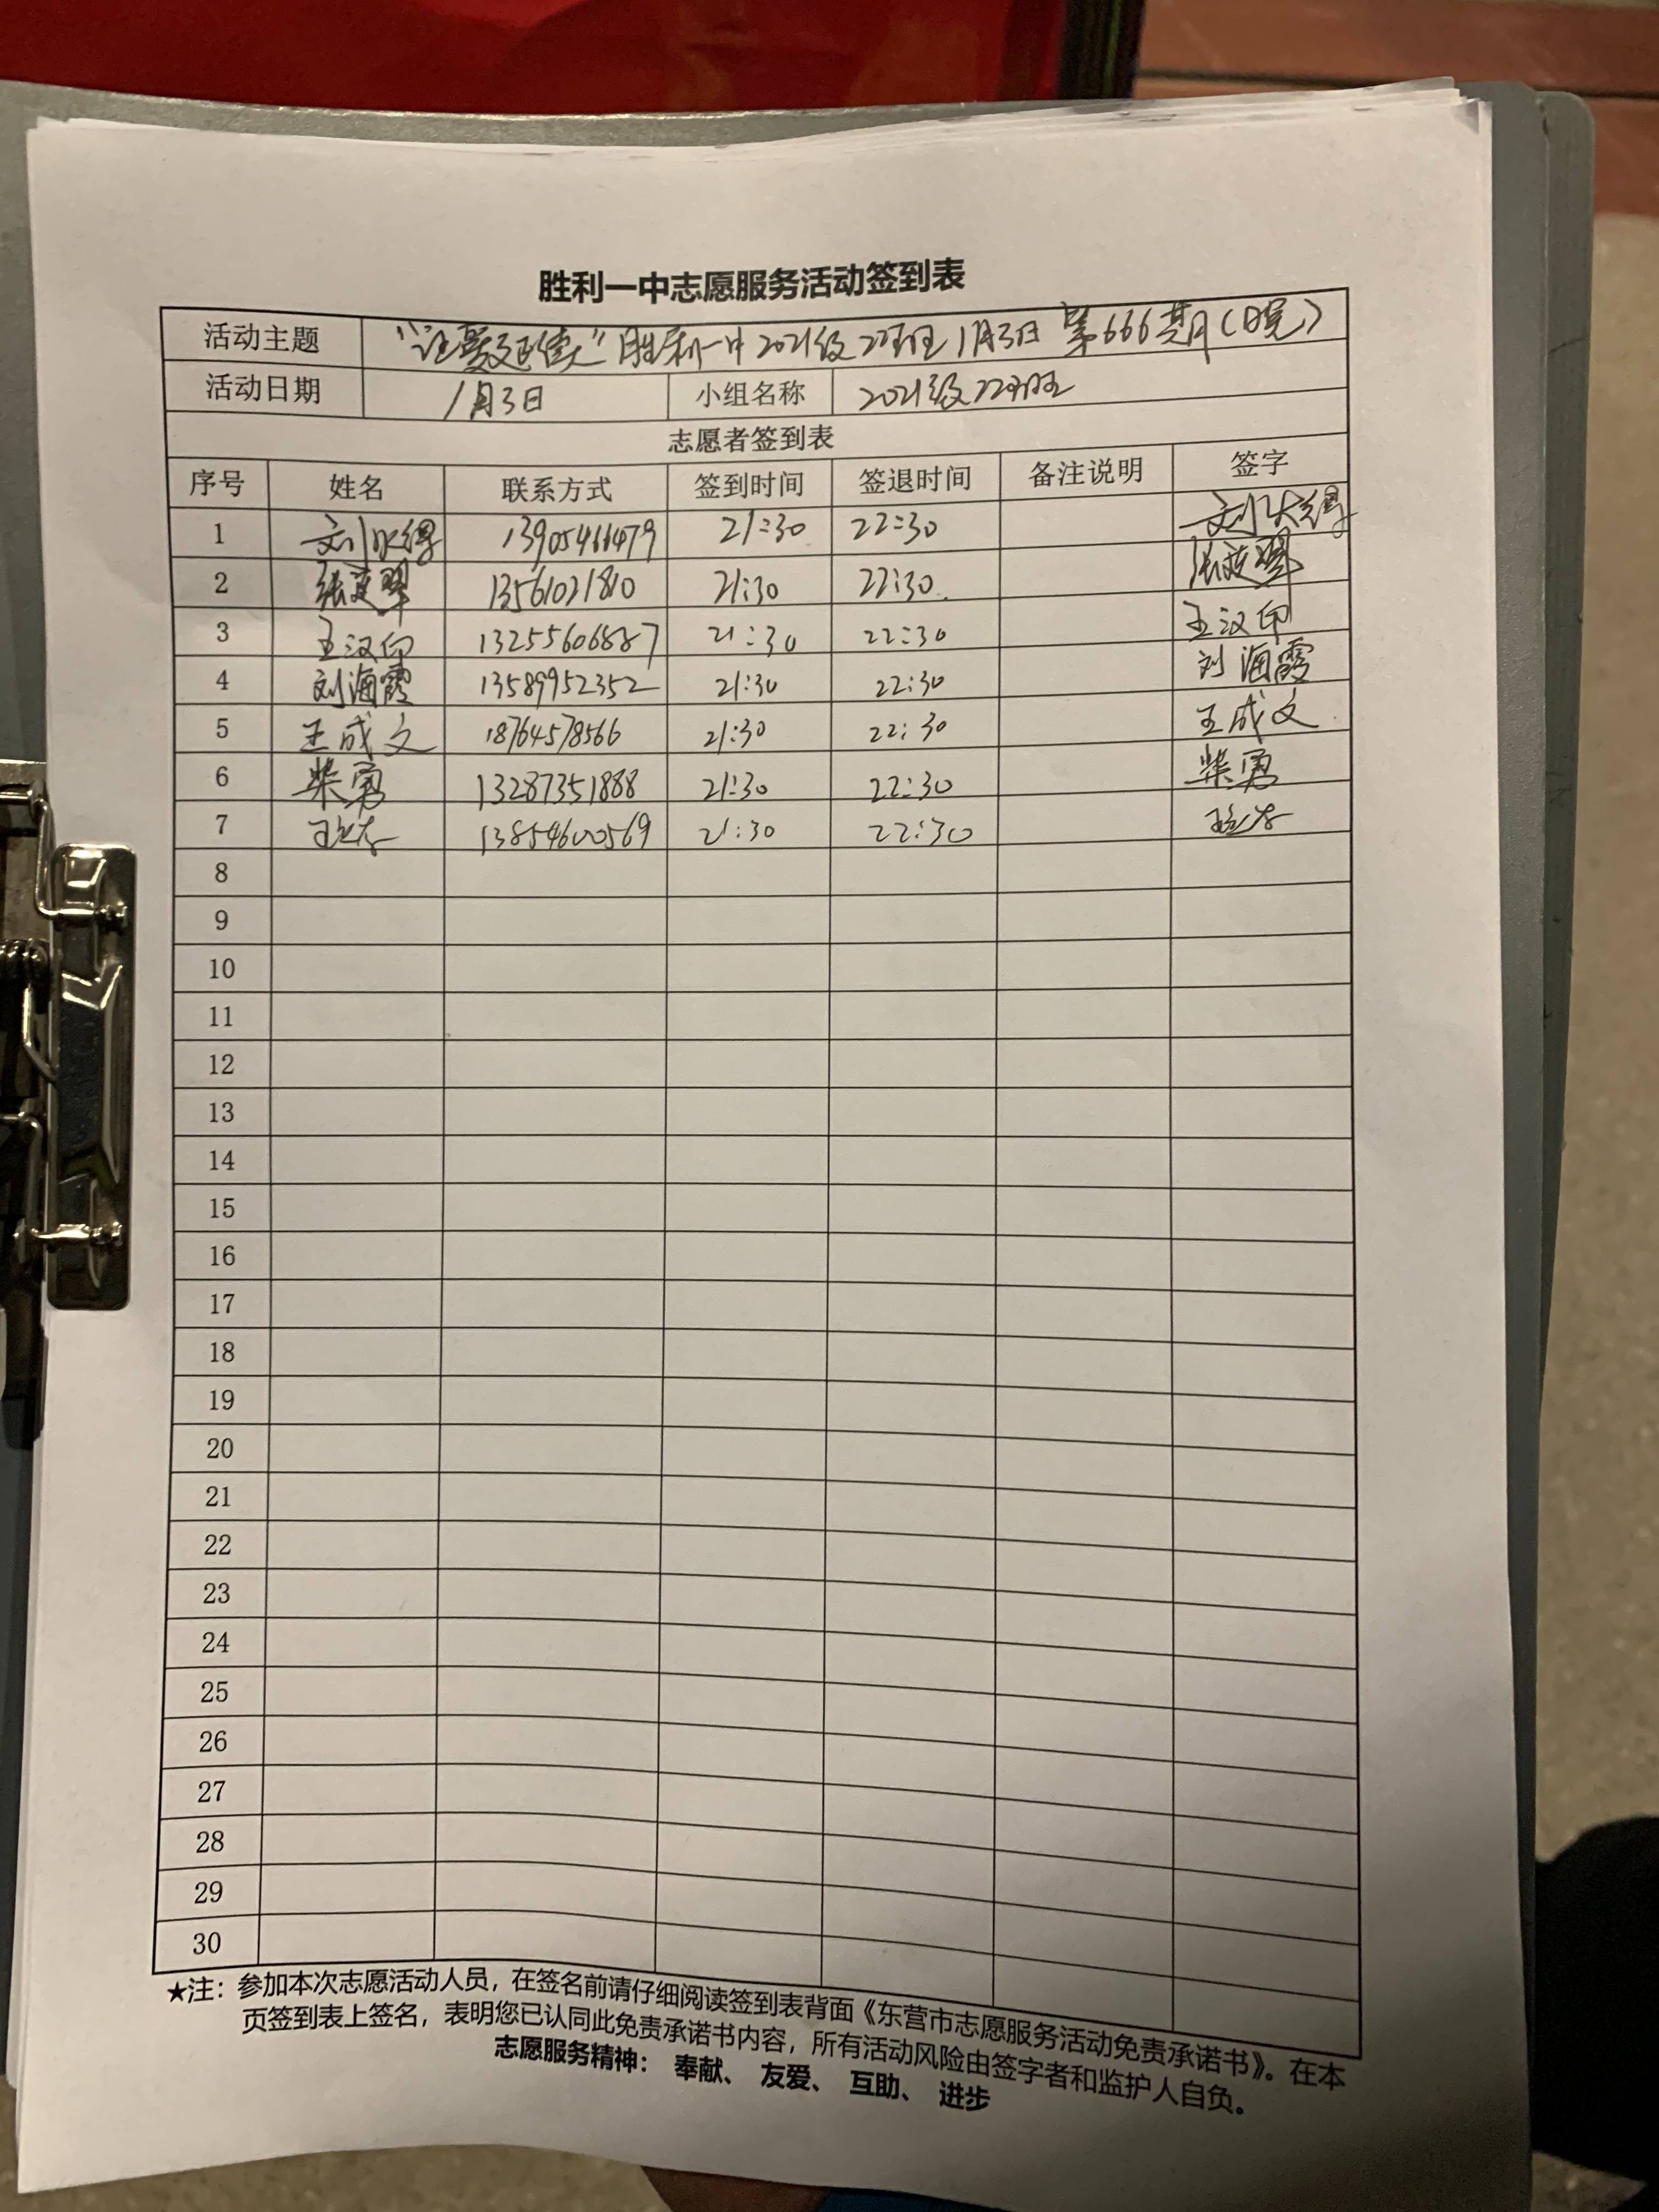 胜利一中志愿服务活动签到表
活动主题 胜利一中2021级22班 1月3日 第666期(晚)
活动日期 1月3日 小组名称 2021级22班
志愿者签到表
序号 姓名 联系方式 签到时间 签退时间 备注说明 签字
1 13905466479 21:30 22:30
2 13561021810 21:30 22:30
3 王汉印 13255606887 21:30 22:30 王汉印
4 刘海霞 13589952352 21:30 22:30 刘海霞
5 王成文 18764578566 21:30 22:30 王成文
6 柴勇 13287351888 21:30 22:30 柴勇
7 13854600569 21:30 22:30
8
9
10
11
12
13
14
15
16
17
18
19
20
21
22
23
24
25
26
27
28
29
30
★注：参加本次志愿活动人员，在签名前请仔细阅读签到表背面《东营市志愿服务活动免责承诺书》。在本
页签到表上签名，表明您已认同此免责承诺书内容，所有活动风险由签字者和监护人自负。
志愿服务精神： 奉献、 友爱、 互助、 进步